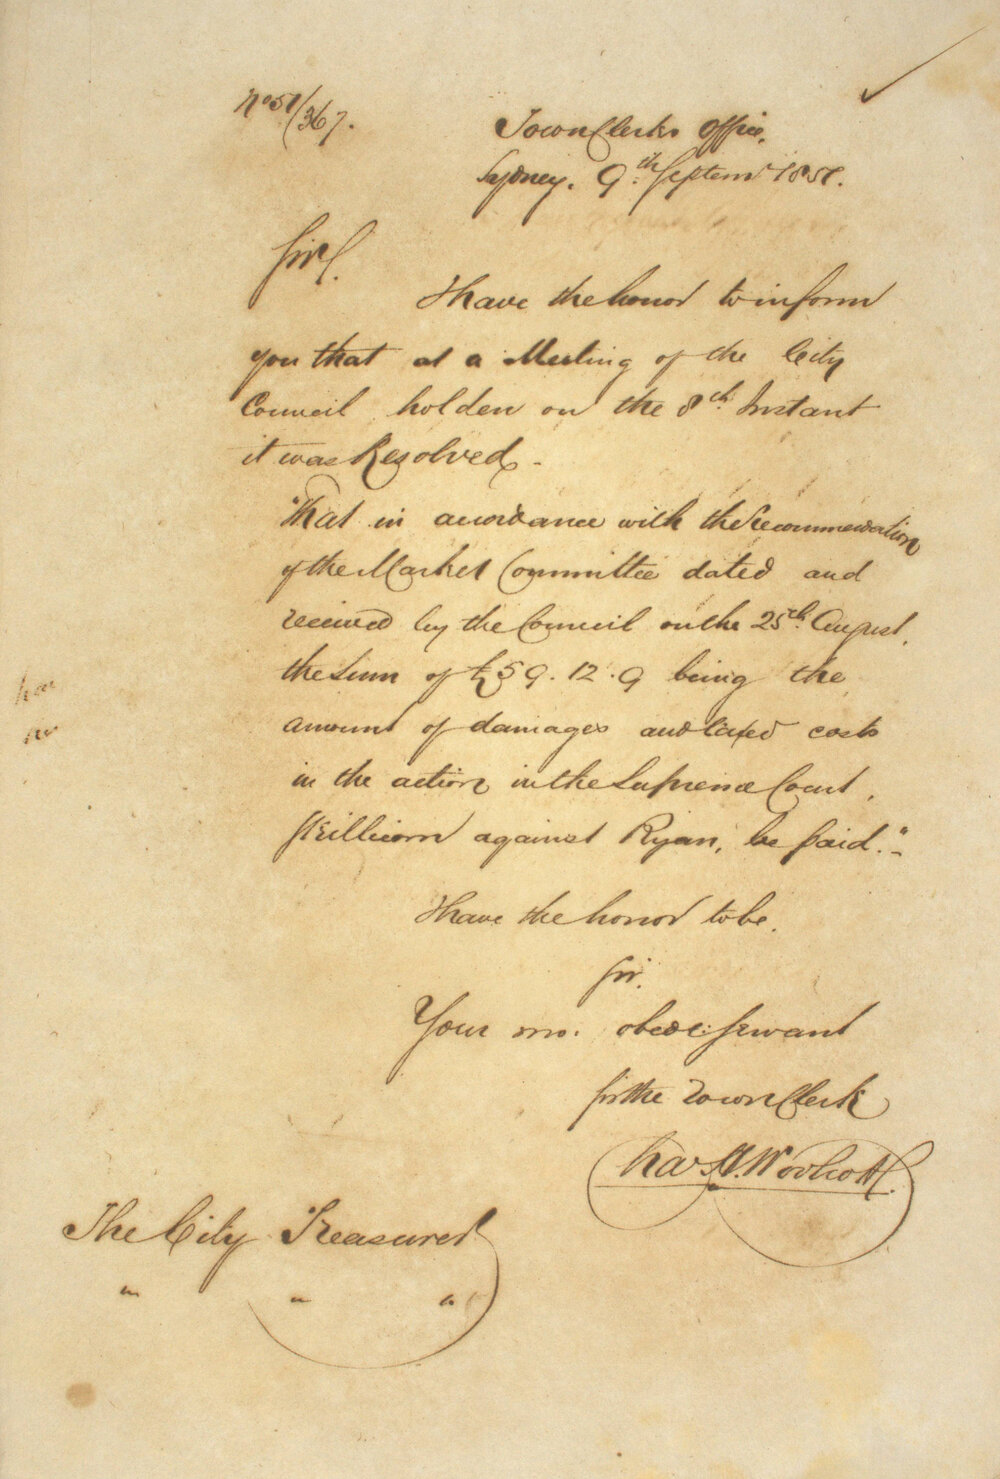 No 51/367.
Town Clerks Office,
Sydney. 9th Septem 1851.
Sir,
I have the honor to inform
you that at a Meeting of the City
Council holden on the 8th Instant
it was Resolved -
"That in accordance with the Recommendation
of the Market Committee dated and
received by the Council on the 25th August,
the Sum of £59.12.9 being the
amount of damages and taxed costs
in the action in the Supreme Court,
against Ryan, be paid." -
I have the honor to be,
Sir,
Your mo. obed: Servant
for the Town Clerk
Chas. H. Woolcott
The City Treasurer
" " "